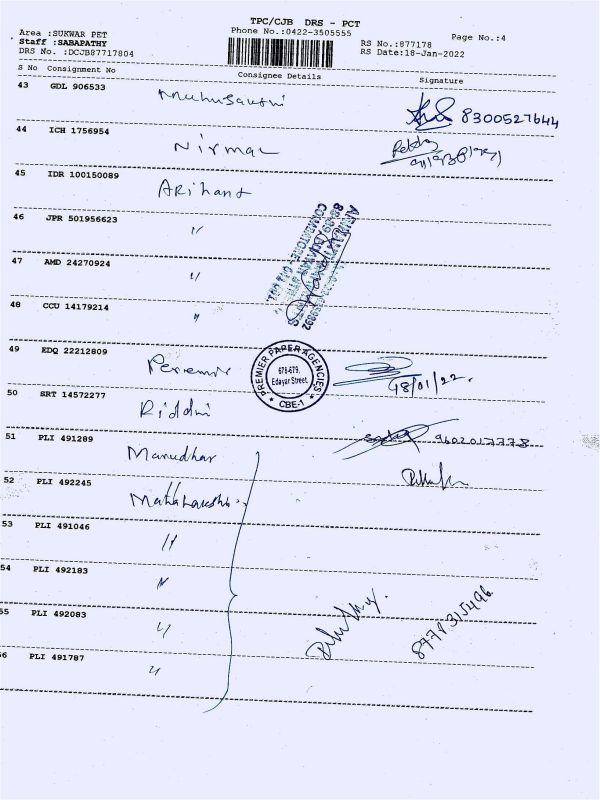 TPC/CJB DRS - PCT
Area :SUKWAR PET
Phone No.:0422-3505555
Page No.:4
Staff :SABAPATHY
RS No.:877178
DRS No. :DCJB87717804
RS Date:18-Jan-2022
S No Consignment No
Consignee Details
Signature
43 GDL 906533
8300527644
44 ICH 1756954
Nirmal
45 IDR 100150089
Arihant
46 JPR 501956623
"
47 AMD 24270924
"
48 CCU 14179214
"
49 EDQ 22212809
PREMIER PAPER AGENCIES
678-679,
Edayar Street,
* CBE-1 *
18/01/22.
50 SRT 14572277
Riddhi
51 PLI 491289
Manudhar
9602017778
52 PLI 492245
Mahalakshmi
53 PLI 491046
"
54 PLI 492183
"
55 PLI 492083
"
8778315496
56 PLI 491787
"